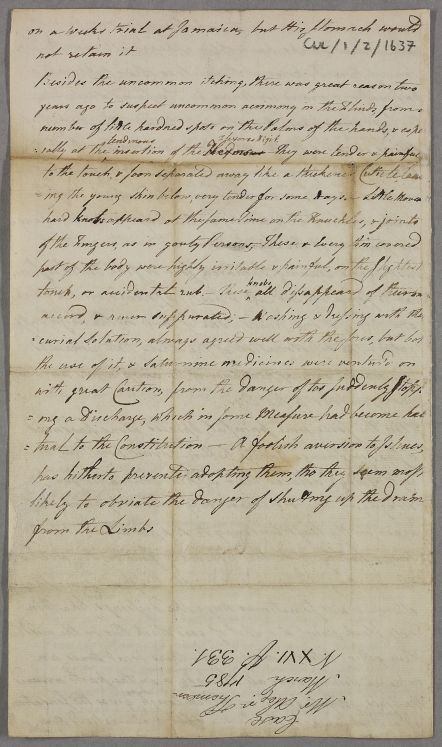 on a weeks trial at Jamaica, but His stomach would
not retain it
Cul/1/2/1637
Besides the uncommon itching, there was great reason two
years ago to suspect uncommon acrimony in the Blood, from a
number of little hardned spots on the Palms of the hands, & espe
=cially at the tendinous insertion of the They were tender & painful
to the touch, & soon separated away like a thickened Cuticle leav
ing the young skin below, very tender for some days - a little
hard knobs appeared at the same time on the Knuckles, & joints
of the fingers, as in gouty Persons, - These & every skin covered
part of the body were highly irritable & painful, on the slightest
touch, or accidental rub. - These knobs all disappeared of their own
accord, & never suppurated; - Washing & dressing with the
curial Solution, always agreed well with the sores, but both
the use of it, & Saturnine medicines were venturd on
with great Caution, from the danger of too suddenly stopp
=ing a Discharge, which in some Measure had become habi
=tual to the Constitution - A foolish aversion to Issues,
has hitherto prevented adopting them, tho they seem most
likely to obviate the danger of shutting up the drain
from the Limbs
Case
Mr. Thomson
March 1785
N. XVI. p. 331.